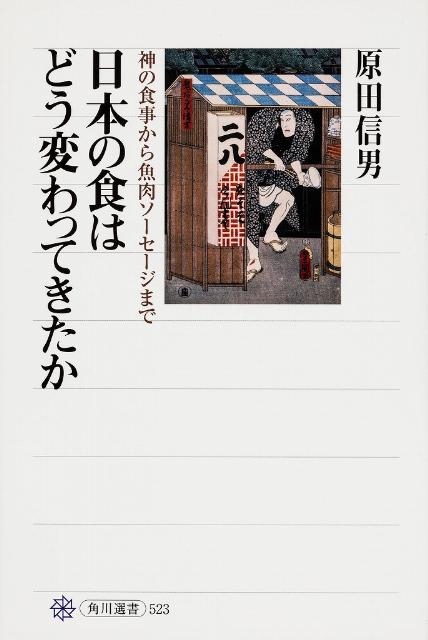 原田信男
二八
神の食事から魚肉ソーセージまで
日本の食は
どう変わってきたか
角川選書 523